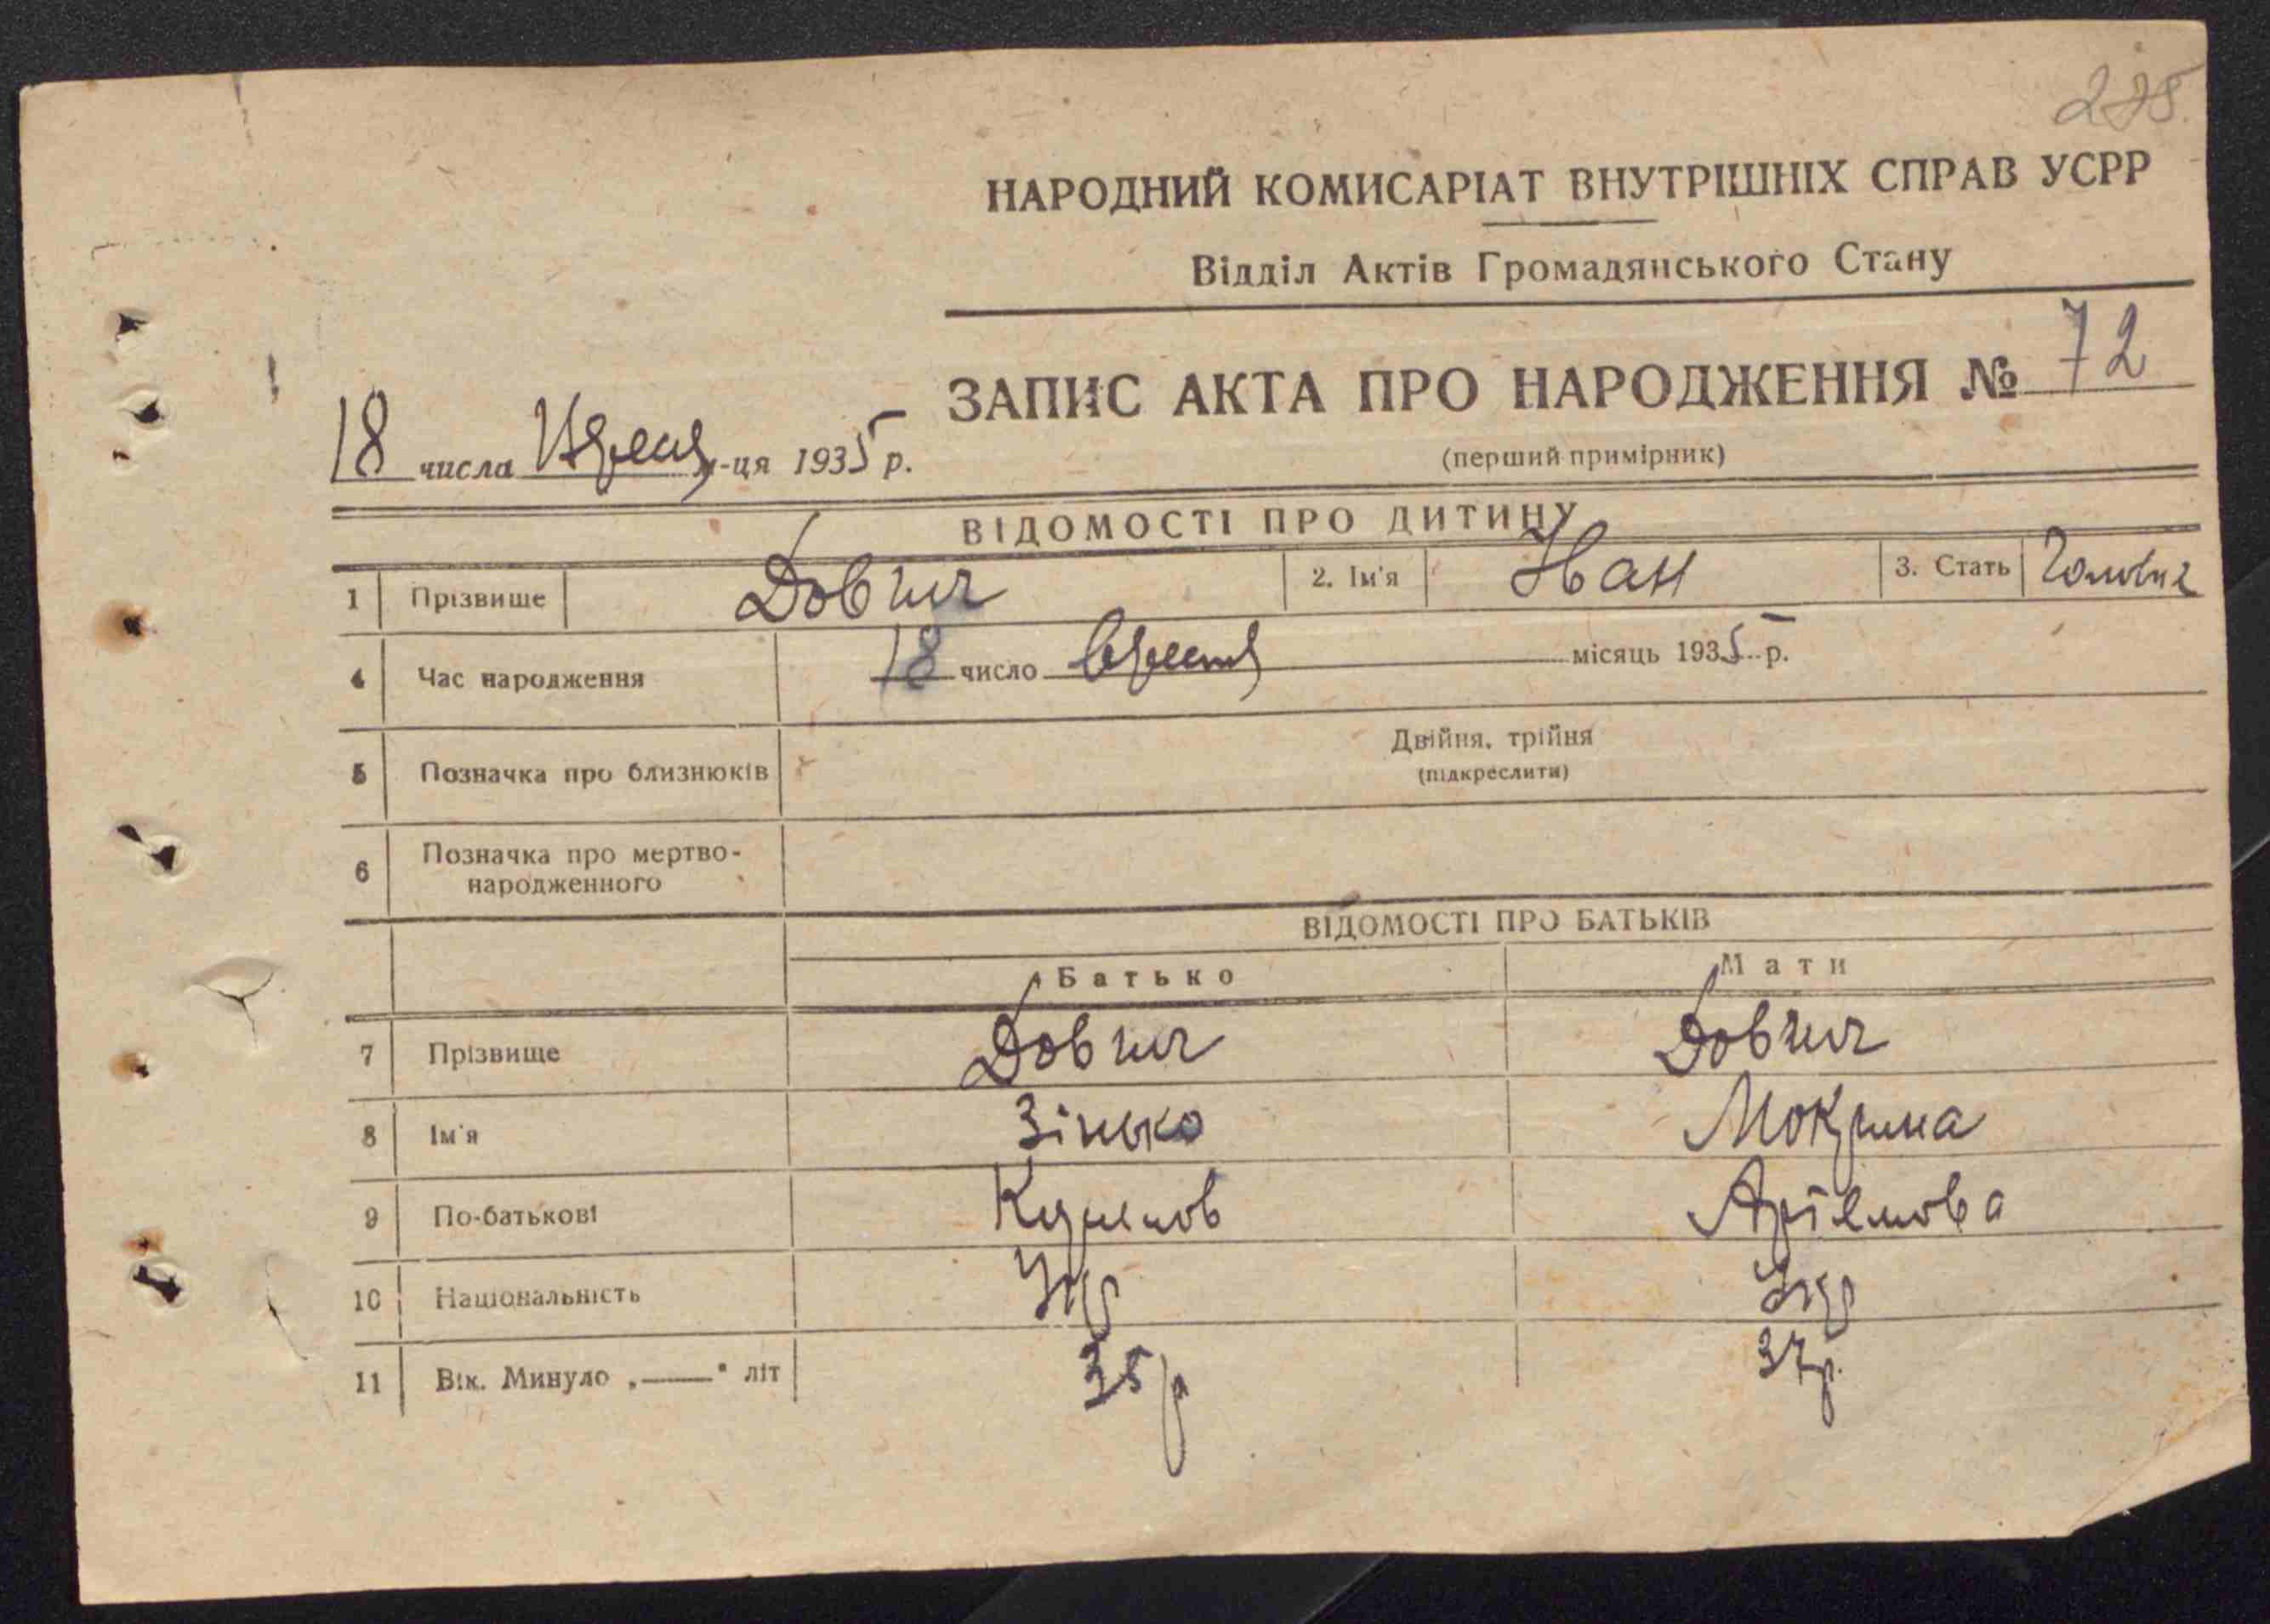 275.
НАРОДНИЙ КОМИСАРІАТ ВНУТРІШНІХ СПРАВ УСРР
Відділ Актів Громадянського Стану
ЗАПИС АКТА ПРО НАРОДЖЕННЯ № 72
(перший примірник)
18 числа м-ця 1935 р.
ВІДОМОСТІ ПРО ДИТИНУ
1 Прізвище Довгич 2. Ім'я Іван 3. Стать
4 Час народження 18 число вересня місяць 1935 р.
5 Позначка про близнюків Двійня, трійня
(підкреслити)
6 Позначка про мертво-
народженного
ВІДОМОСТІ ПРО БАТЬКІВ
Батько Мати
7 Прізвище Довгич Довгич
8 Ім'я Зінько Мокрина
9 По-батькові Артемова
10 Національність Укр Укр
11 Вік. Минуло „——" літ 35 р 37 р.